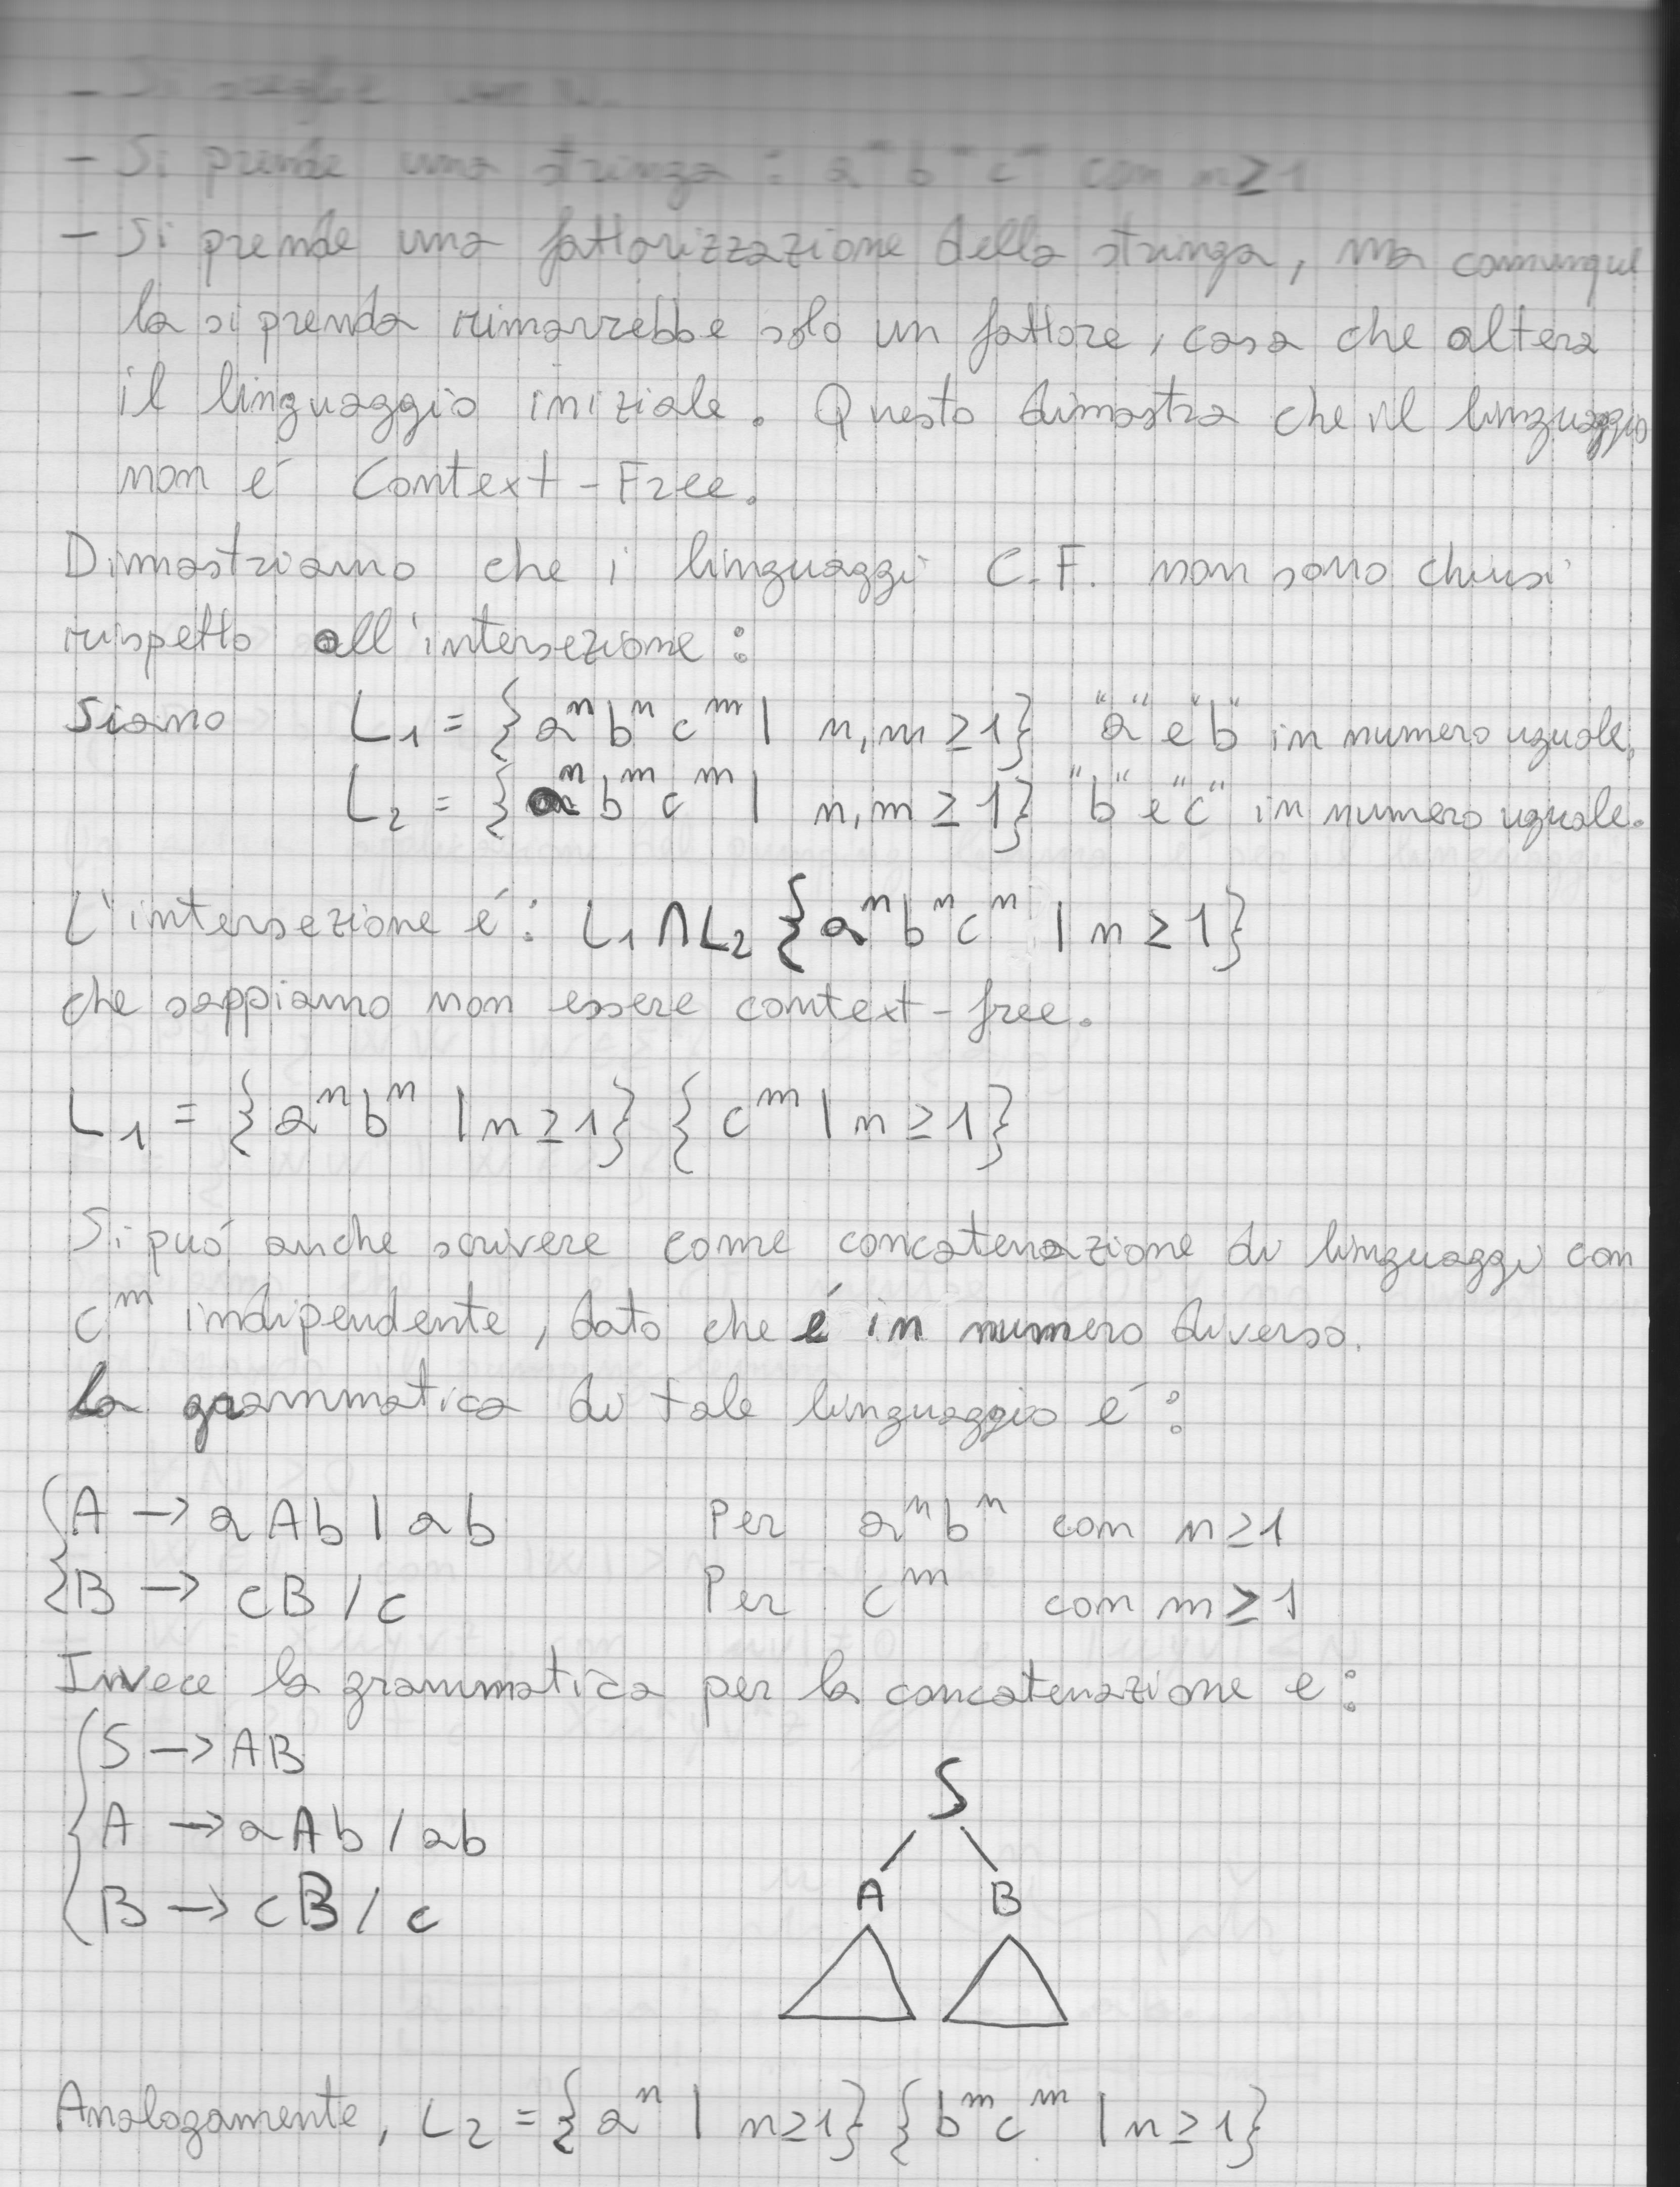 - Si
- Si prende una stringa : aⁿ bⁿ cⁿ con n ≥ 1
- Si prende una fattorizzazione della stringa, ma comunque
la si prenda rimarrebbe solo un fattore, cosa che altera
il linguaggio iniziale. Questo dimostra che il linguaggio
non é Context-Free.
Dimostriamo che i linguaggi C.F. non sono chiusi
rispetto all'intersezione :
Siano L₁ = {aⁿ bⁿ cᵐ | n, m ≥ 1} "a" e "b" in numero uguale,
L₂ = {aⁿ bᵐ cᵐ | n, m ≥ 1} "b" e "c" in numero uguale.
L'intersezione é : L₁ ∩ L₂ {aⁿ bⁿ cⁿ | n ≥ 1}
che sappiamo non essere context-free.
L₁ = {aⁿ bⁿ | n ≥ 1} {cᵐ | n ≥ 1}
Si puó anche scrivere come concatenazione di linguaggi con
cᵐ indipendente, dato che é in numero diverso.
La grammatica di tale linguaggio é :
A → aAb | ab Per aⁿ bⁿ con n ≥ 1
B → cB / c Per cᵐ con m ≥ 1
Invece la grammatica per la concatenazione e :
S → AB
A → aAb / ab
B → cB / c
S
A B
Analogamente, L₂ = {aⁿ | n ≥ 1} {bᵐ cᵐ | n ≥ 1}